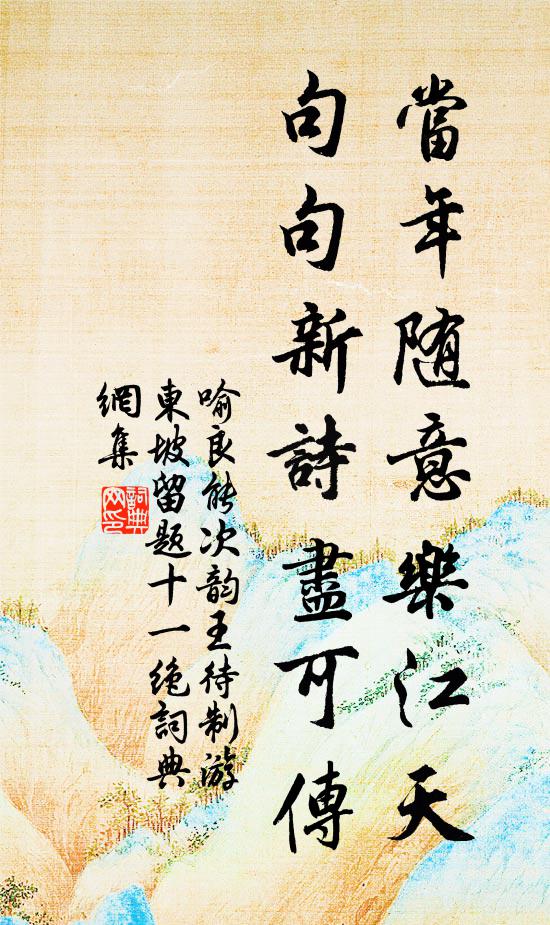 當年随意樂江天
句句新詩盡可傳
喻良能次韵王待制游
東坡留題十一绝詞典
網集
詞典
网印